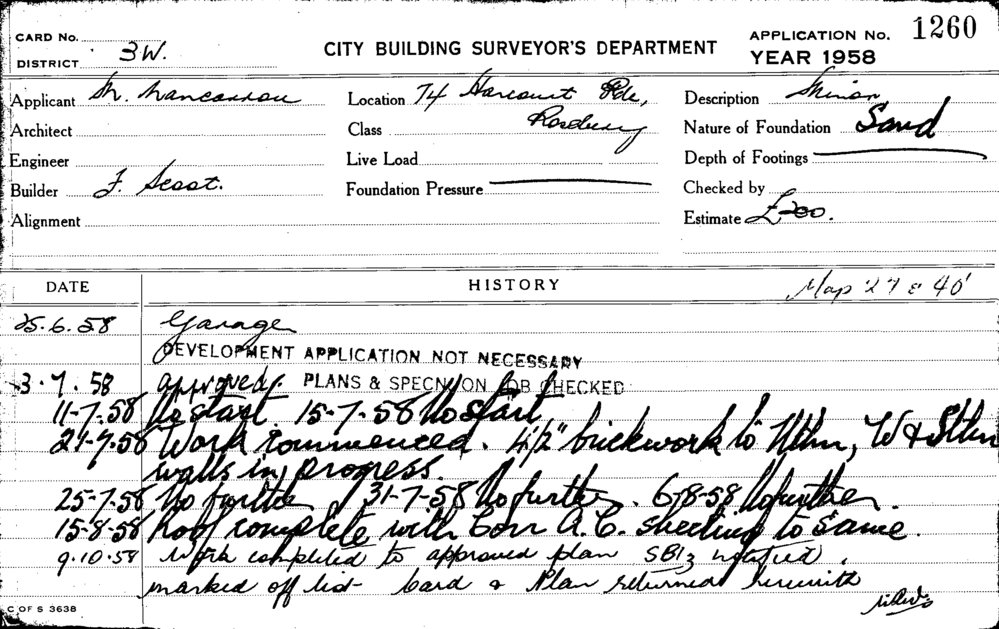 CARD No.
DISTRICT 3W.
CITY BUILDING SURVEYOR'S DEPARTMENT
APPLICATION No. 1260
YEAR 1958
Applicant M.
Location 74 Harcourt Pde,
Rosebery
Description Minor
Architect
Class
Nature of Foundation Sand
Engineer
Live Load
Depth of Footings
Builder F. Scoot.
Foundation Pressure
Checked by
Alignment
Estimate £200.
DATE
HISTORY
Map 27 & 40'
25.6.58 Garage
DEVELOPMENT APPLICATION NOT NECESSARY
3.7.58 approved. PLANS & SPECN ON JOB CHECKED
11-7.58 No start. 15-7-58 No start.
21-7-58 Work commenced. 4½" brickwork to Nthn, W & Sthn
walls in progress.
25-7-58 No further 31-7-58 No further. 6-8-58 No further.
15-8-58 Roof complete with Corr A.C. sheeting to same.
9.10.58 Work completed to approved plan notified.
marked off list - Card & Plan returned herewith
C OF S 3638